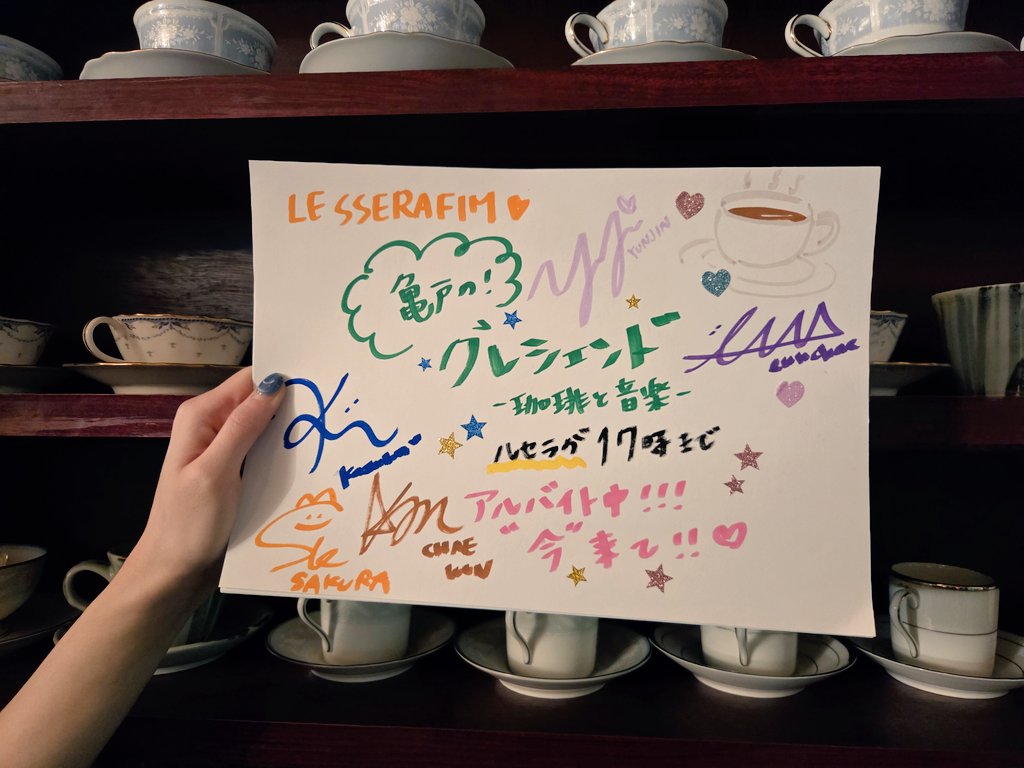 LE SSERAFIM
YUNJIN
亀戸の!
クレシェンド
EUNCHAE
-珈琲と音楽-
Kazuha
ルセラが 17時まで
アルバイト中!!!
"今"来て!!
CHAE
WON
SAKURA